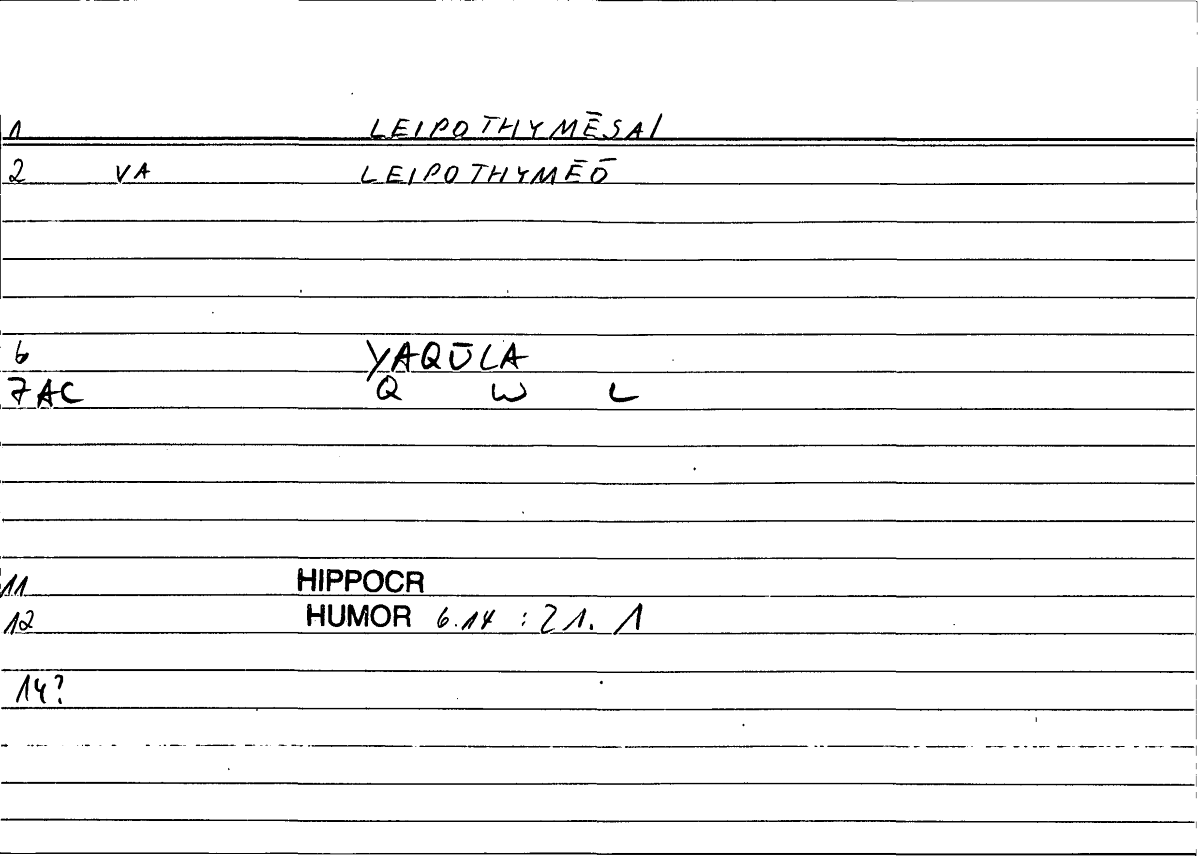 1 LEIPOTHYMĒSAI
2 VA LEIPOTHYMĒŌ
6 YAQŪLA
7 AC Q W L
11 HIPPOCR
12 HUMOR 6.14 : 21. 1
14?